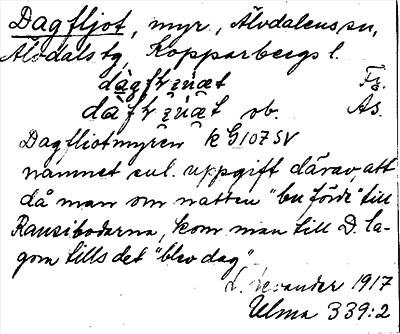 Dagfljot, myr, Älvdalens sn,
Älvdals tg, Kopparbergs l.
Fg.
ob. As.
Dagfliotmyren k G107 SV
namnet enl. uppgift därav, att
då man om natten "bu förde" till
Ransibodarna, kom man till D. la-
gom tills det "blev dag"
L. Levander 1917
Ulma 339:2